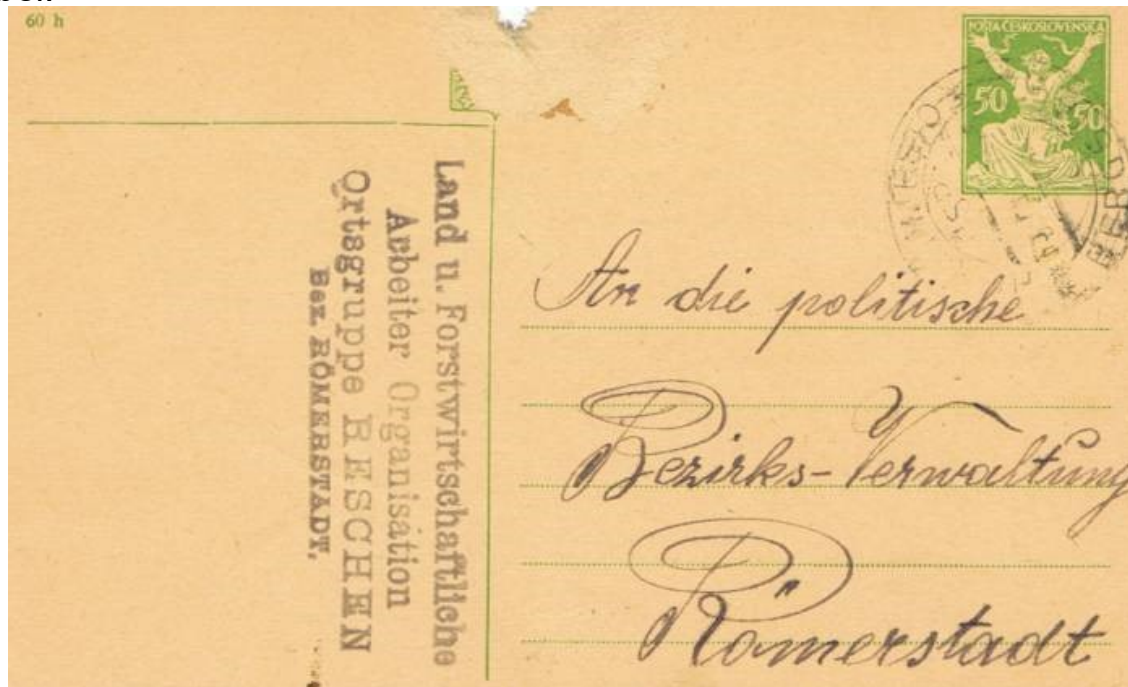 60 h
POŠTA ČESKOSLOVENSKÁ
50 50
Land u. Forstwirtschaftliche
Arbeiter Organisation
Ortsgruppe RESCHEN
Bez. RÖMERSTADT.
An die politische
Bezirks-Verwaltung
Römerstadt